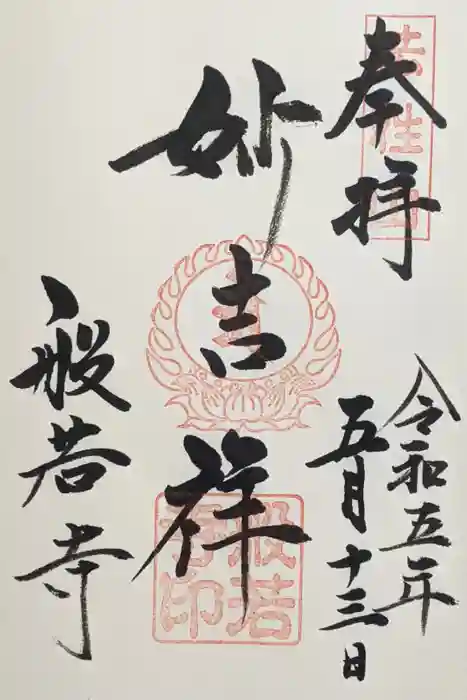 奉拝
令和五年
五月十三日
妙吉祥
般若寺
法性山
般若寺印